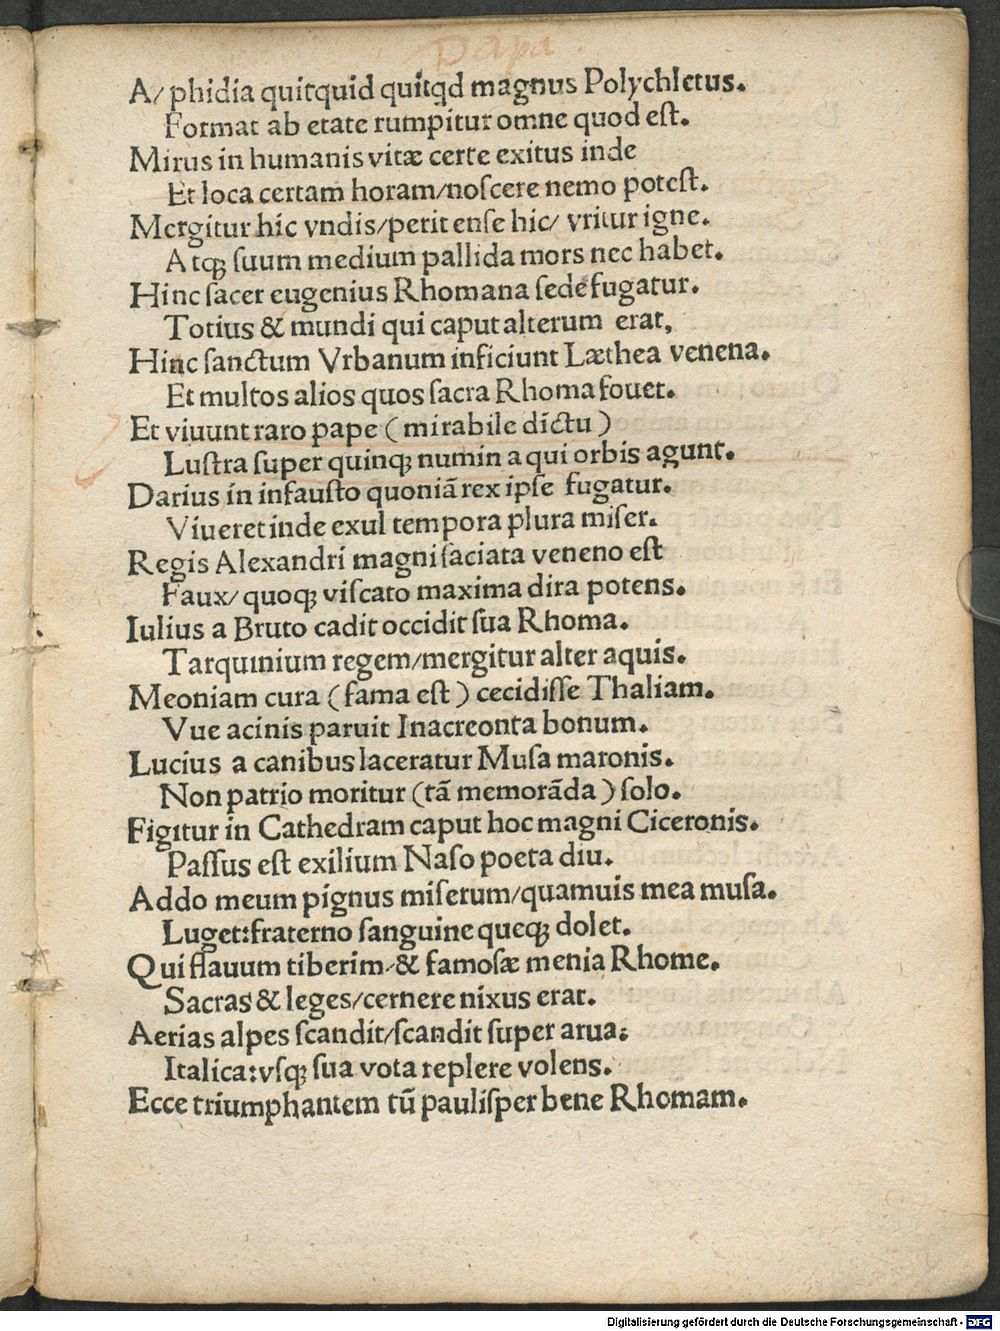 Papa.
A/ phidia quitquid quitqd magnus Polychletus.
Format ab etate rumpitur omne quod eſt.
Mirus in humanis vitæ certe exitus inde
Et loca certam horam/noſcere nemo poteſt.
Mergitur hic vndis/perit enſe hic/ vritur igne.
Atqꝫ ſuum medium pallida mors nec habet.
Hinc ſacer eugenius Rhomana ſede fugatur.
Totius & mundi qui caput alterum erat,
Hinc ſanctum Vrbanum inficiunt Læthea venena.
Et multos alios quos ſacra Rhoma fouet.
Et viuunt raro pape (mirabile dictu)
Luſtra ſuper quinqꝫ numina qui orbis agunt.
Darius in infauſto quoniā rex ipſe fugatur.
Viueret inde exul tempora plura miſer.
Regis Alexandri magni ſaciata veneno eſt
Faux/ quoqꝫ viſcato maxima dira potens.
Iulius a Bruto cadit occidit ſua Rhoma.
Tarquinium regem/mergitur alter aquis.
Meoniam cura (fama eſt) cecidiſſe Thaliam.
Vue acinis paruit Inacreonta bonum.
Lucius a canibus laceratur Muſa maronis.
Non patrio moritur (tā memorāda) ſolo.
Figitur in Cathedram caput hoc magni Ciceronis.
Paſſus eſt exilium Naſo poeta diu.
Addo meum pignus miſerum/quamuis mea muſa.
Luget:fraterno ſanguine queqꝫ dolet.
Qui flauum tiberim/& famoſæ menia Rhome.
Sacras & leges/cernere nixus erat.
Aerias alpes ſcandit/ſcandit ſuper arua:
Italica:vſqꝫ ſua vota replere volens.
Ecce triumphantem tū pauliſper bene Rhomam.
Digitalisierung gefördert durch die Deutsche Forschungsgemeinschaft - DFG